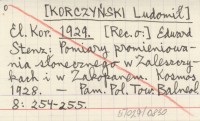 [KORCZYŃSKI Ludomił]
El. Kor. 1929. [Rec. o:] Eduard
Stenz: Pomiary promieniowa-
nia słonecznego w Zaleszczy-
kach i w Zakopanem. Kosmos
1928. — Pam. Pol. Tow. Balneol.
8: 254-255.